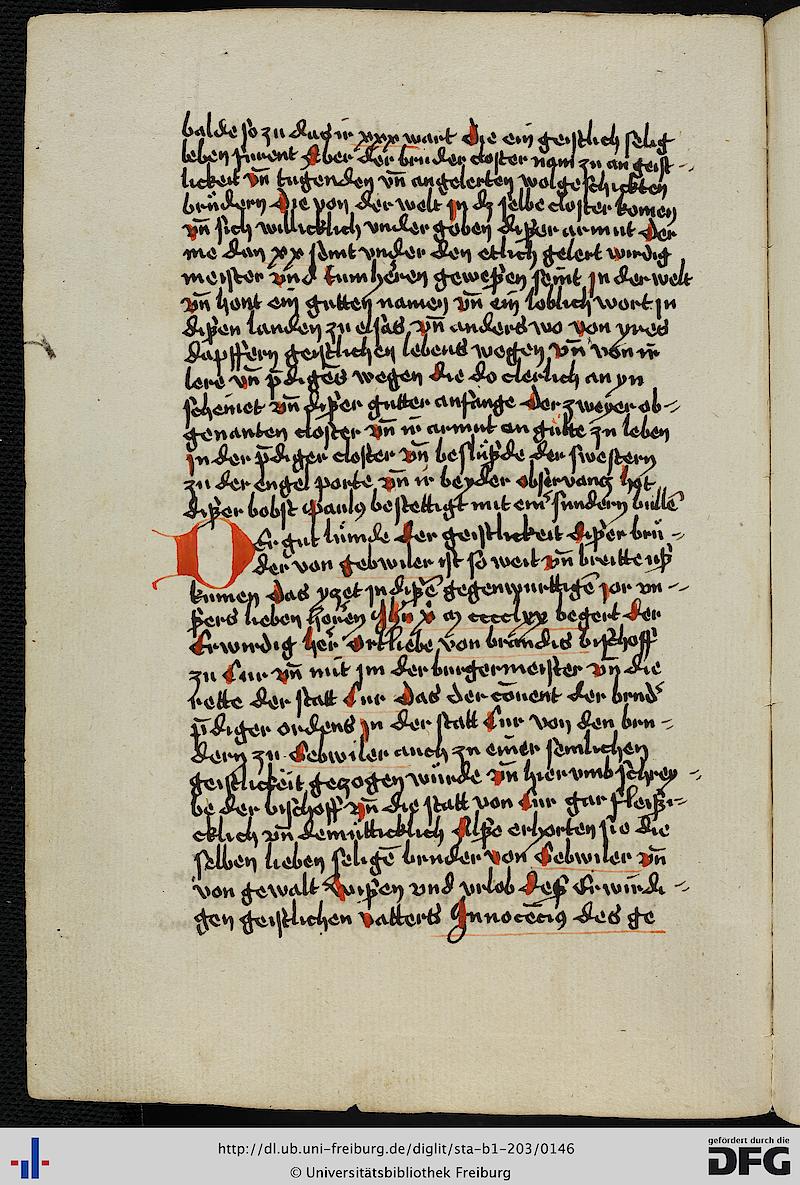 balde so zu das ir xxx wart Die ein geistlich selig
leben furent Aber der bruder closter nam zu an geist-
lickeit vn̄ tugenden vn̄ angelerten wolgeschickten
brüdern Die von der welt in dz selbe closter komen
vn̄ sich willicklich vnder goben disser armut Der
me dan xx semt vnder den etlich gelert wirdig
meister vnd tumheren gewessen semt in der welt
vn̄ hont ein gutten namen vn̄ ein loblich wort in
dissen landen zu elsas vn̄ anders wo von yres
dapffern geistlichen lebens wegen vn̄ von ir
lere vn̄ p̄diges wegen die do clerlich an yn
scheinet vn̄ disser gutter anfange Der zweyer ob-
genanten closter vn̄ ir armut an gütte zu leben
in der p̄diger closter vn̄ beslüsde der swestern
zu der engel porte vn̄ ir beyder observantz hot
disser bobst paulus bestettigt mit einr sundern bullē
DEr gut lümde der geistlickeit disser brü-
der von gebwiler ist so weit vn̄ breitte uss
kumen das yzet in dissē gegenwurttigē jor vn-
sers lieben heren Jhu x̄ m cccclxx begert der
Erwirdig her Ortliebe von brandis bischoff
zu Cur vn̄ mit im der burgermeister vn̄ die
rette der statt Cur Das der cōuent der brud'
p̄diger ordens in der statt Cur von den bru-
dern zu Gebwiler auch zu einer semlichen
geistlickeit gezogen würde vn̄ hier vmb schrey-
be der bischoff vn̄ die statt von Cur gar fleissi-
cklich vn̄ demütticklich Alsse erhorten sie die
selben lieben seligē bruder von Gebwiler vn̄
von gewalt wissen vnd vrlob dess Erwirdi-
gen geistlichen vatters Innocēcius des ge
http://dl.ub.uni-freiburg.de/diglit/sta-b1-203/0146
© Universitätsbibliothek Freiburg
gefördert durch die
DFG